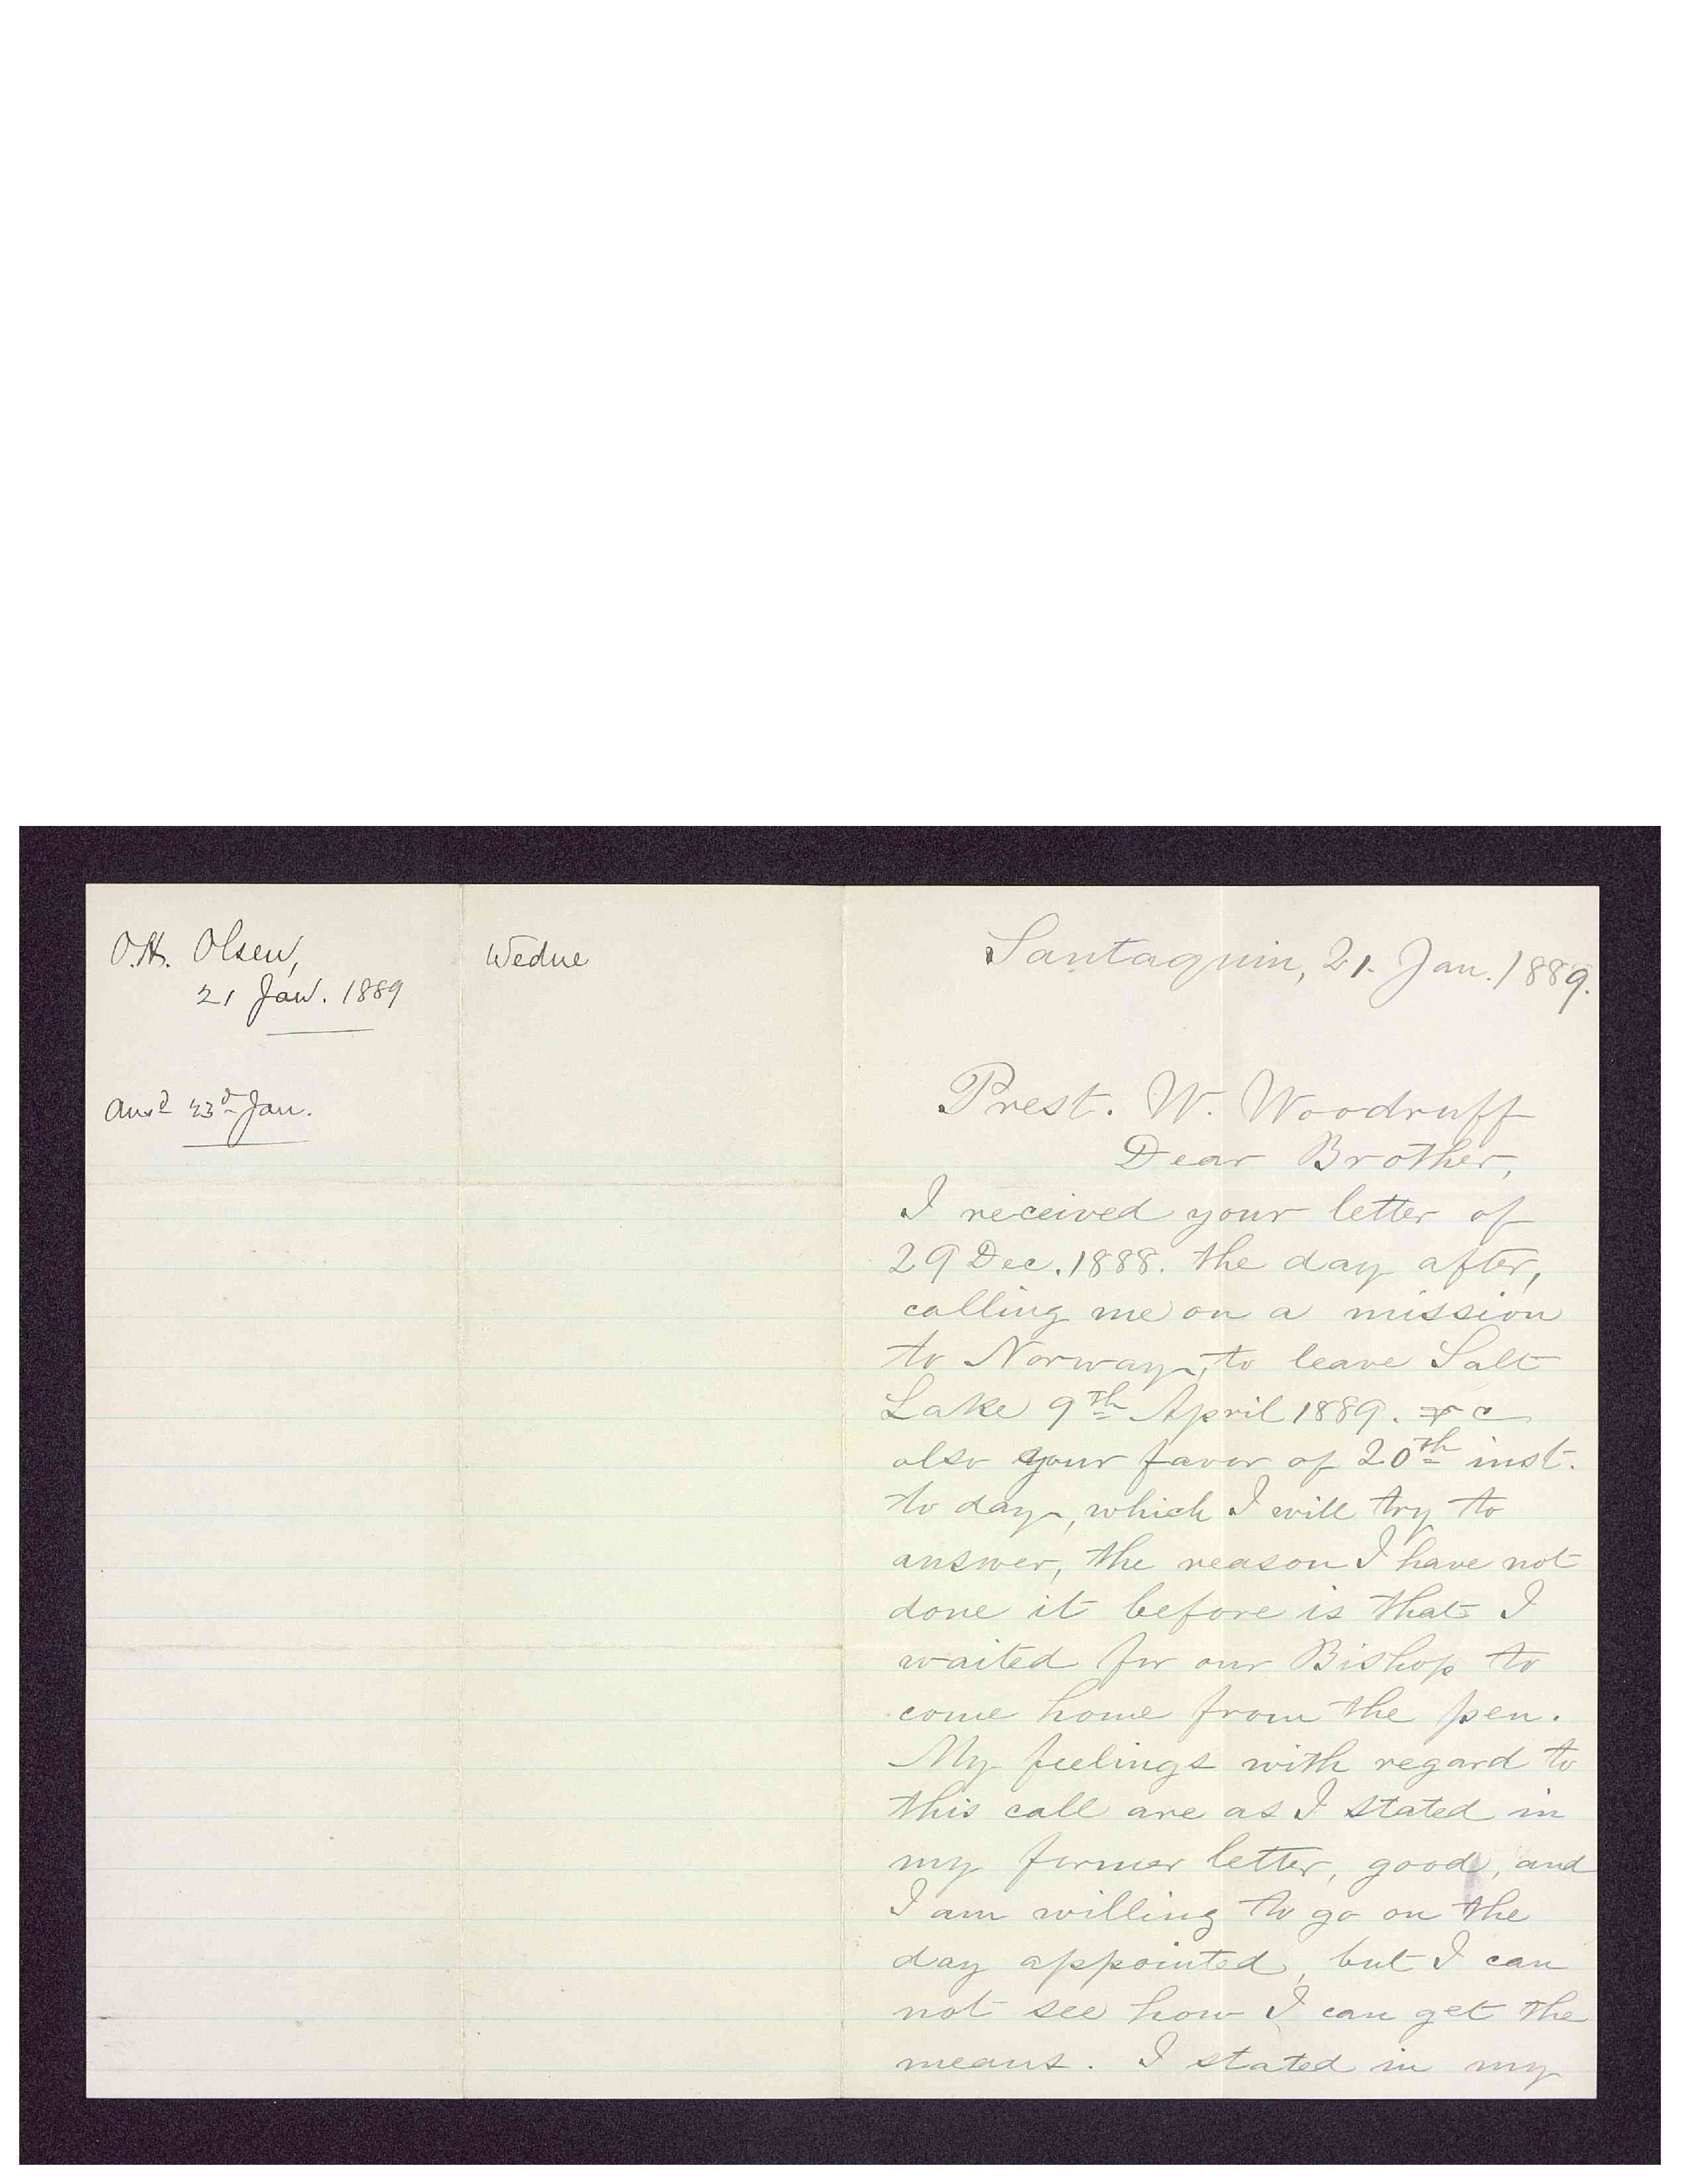 O.H. Olsen,
21 Jan. 1889
Ansd 23d Jan.
Wedne
Santaquin, 21. Jan. 1889.
Prest. W. Woodruff
Dear Brother,
I received your letter of
29 Dec. 1888. the day after,
calling me on a mission
to Norway, to leave Salt
Lake 9th April 1889. & c
also your favor of 20th inst.
to day, which I will try to
answer, the reason I have not
done it before is that I
waited for our Bishop to
come home from the pen.
My feelings with regard to
this call are as I stated in
my former letter, good, and
I am willing to go on the
day appointed, but I can
not see how I can get the
means. I stated in my